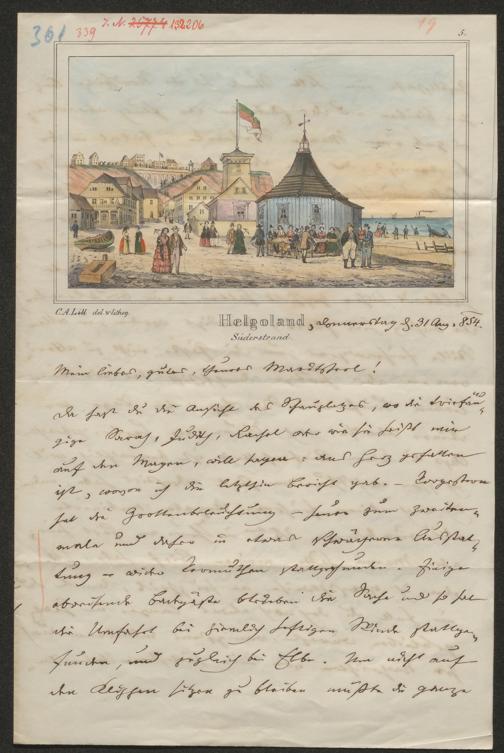 361
339
J. N. 25774 132206
19
5.
C. A. Lill del. u. lithog.
Helgoland, Donnerstag d. 31 Aug. 854.
Süderstrand
Mein liebes, gutes, theures
Da hast du die Ansicht des Schauplatzes, wo die
Sarah, Judith, Rachel oder wie sie heißt mir
auf den Magen, will sagen: ans Herz gefallen
ist, wovon ich dir letzthin Bericht gab. – Vorgestern
hat die Grottenbeleuchtung – heuer zum zweiten-
male und daher in etwas schwächerer Ausstat-
tung – wider Vermuthen stattgefunden. Einige
abreisende Badegäste die Sache und so hat
die Umfahrt bei ziemlich heftigem Winde stattge-
funden, und zugleich bei Ebbe. Um nicht auf
den Klippen sitzen zu bleiben mußte die ganze